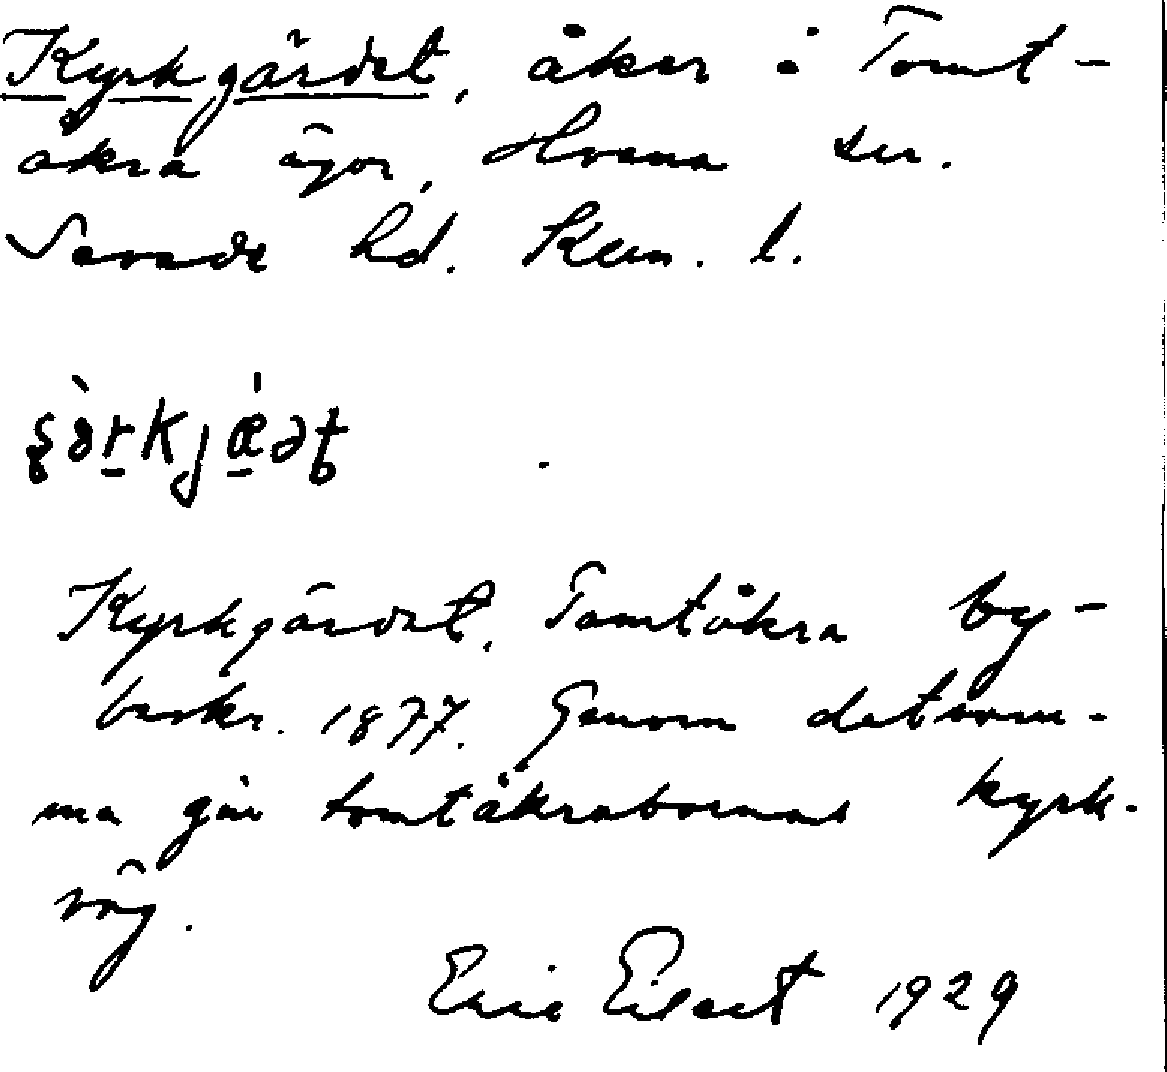 Kyrkgärdet, åker i Tomt-
åkra ägor, Hvena sn.
Sevede hd. Kron. l.
Kyrkgärdet, Tomtåkra by-
beskr. 1877. Genom detsam-
ma går tomtåkrabornas kyrk-
väg.
Eric Elert 1929